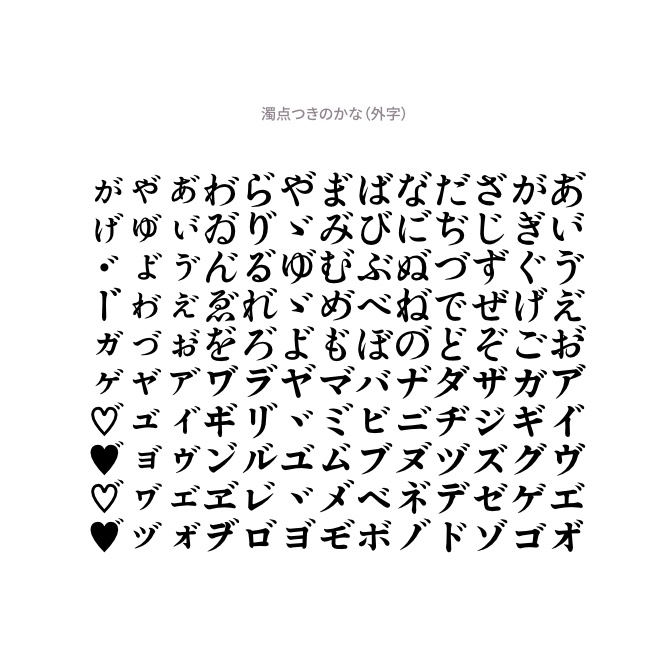 濁点つきのかな（外字）
あ゙い゙ゔえ゙お゙ア゙イ゙ヴエ゙オ゙
がぎぐげごガギグゲゴ
ざじずぜぞザジズゼゾ
だぢづでどダヂヅデド
な゙に゙ぬ゙ね゙の゙ナ゙ニ゙ヌ゙ネ゙ノ゙
ばびぶべぼバビブベボ
ま゙み゙む゙め゙も゙マ゙ミ゙ム゙メ゙モ゙
や゙ゞゆ゙ゞよ゙ヤ゙ヾユ゙ヾヨ゙
ら゙り゙る゙れ゙ろ゙ラ゙リ゙ル゙レ゙ロ゙
わ゙ゐ゙ん゙ゑ゙を゙ヷヸン゙ヹヺ
ぁ゙ぃ゙ぅ゙ぇ゙ぉ゙ァ゙ィ゙ゥ゙ェ゙ォ゙
ゃ゙ゅ゙ょ゙ゎ゙っ゙ャ゙ュ゙ョ゙ヮ゙ッ゙
ゕ゙ゖ゙・゙ー゙ヵ゙ヶ゙♡゙♥゙♡゙♥゙